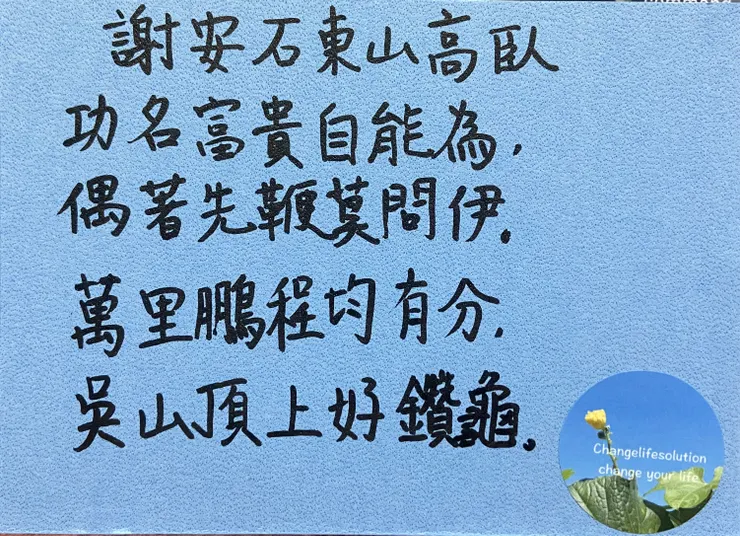 謝安石東山高臥
功名富貴自能為,
偶著先鞭莫問伊.
萬里鵬程均有分.
吳山頂上好鑽龜.
Changelifesolution
change your life